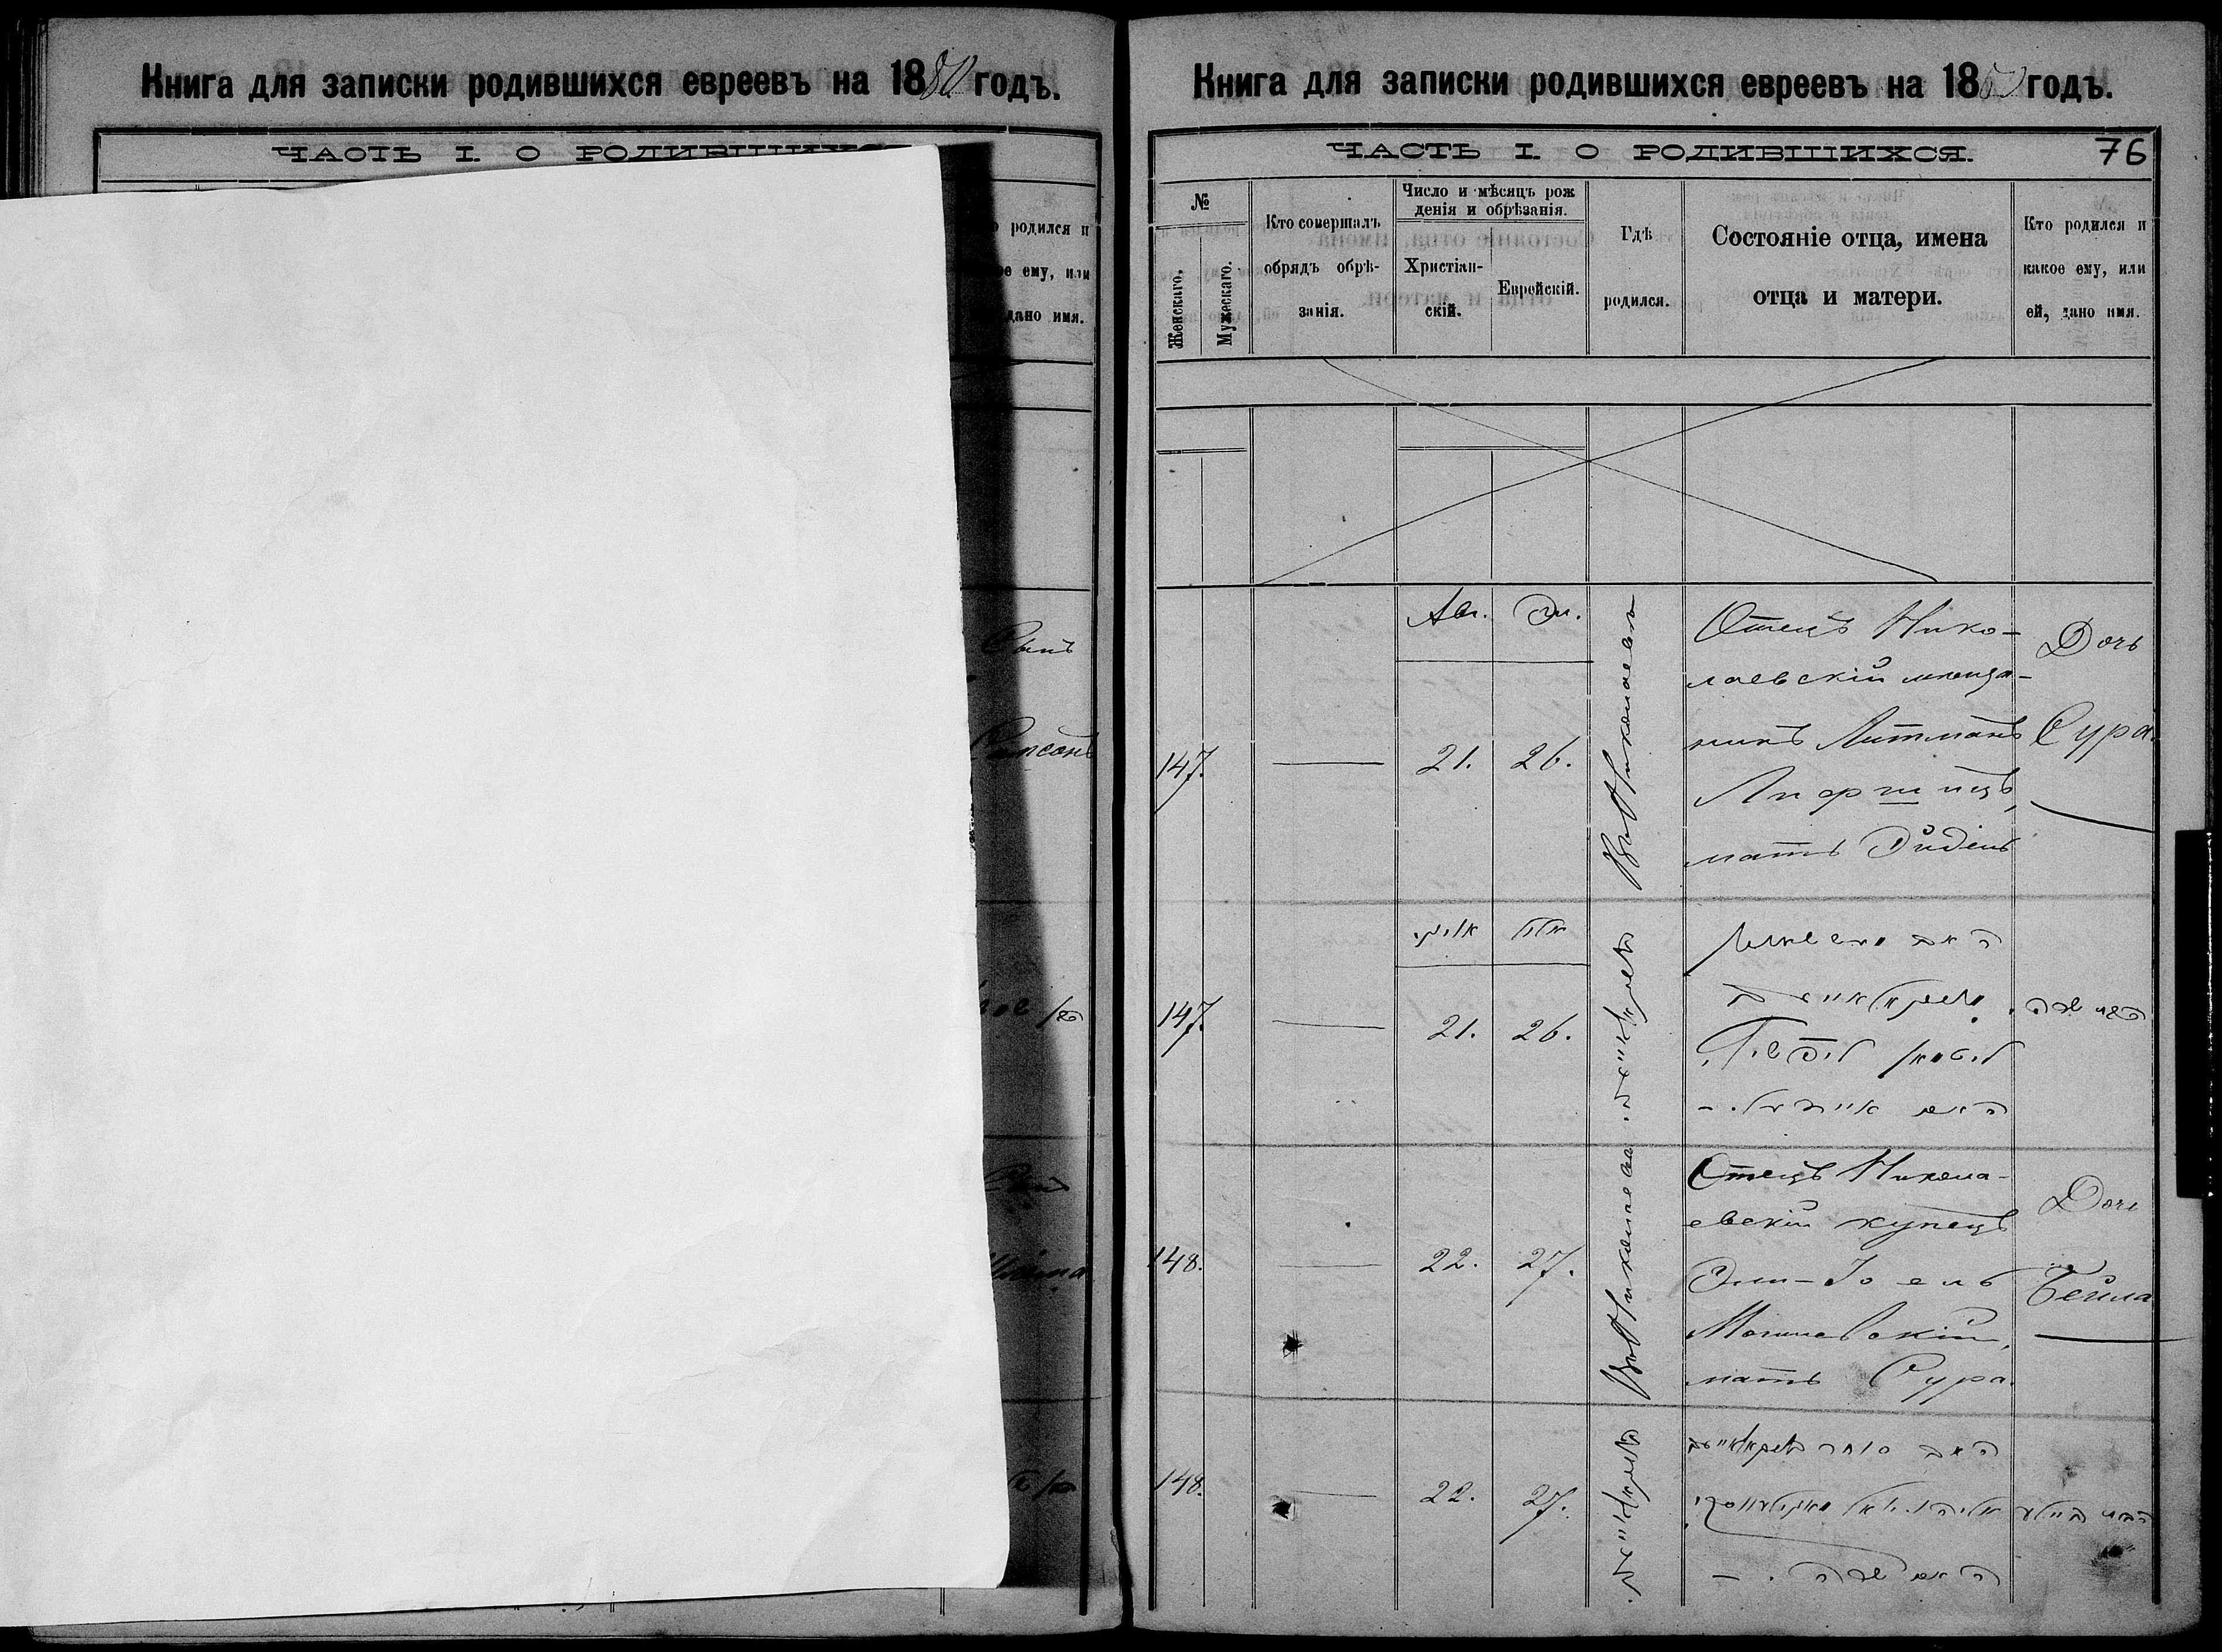 Книга для записки родившихся евреевъ на 1880 годъ.
ЧАСТЬ I. О РОДИВШИХСЯ.
родился и
ему, или
дано имя.
Сынъ
Самсонъ
Сынъ
Книга для записки родившихся евреевъ на 1880 годъ.
ЧАСТЬ I. О РОДИВШИХСЯ.
76
№
Женскаго.
Мужескаго.
Кто совершалъ
обрядъ обрѣ-
занія.
Число и мѣсяцъ рож
денія и обрѣзанія.
Христіан-
скій.
Еврейскій.
Гдѣ
родился.
Состояніе отца, имена
отца и матери.
Кто родился и
какое ему, или
ей, дано имя.
147.
Авг.
21.
Эл.
26.
Въ Николаевѣ
Отецъ Нико-
лаевскій мѣща-
нинъ Литманъ
Лифшицъ,
мать Эйдель
Дочь
Сура.
147.
21.
26.
האב
ליטמאן ליפשיץ
האם איידעל. –
הבת שרה.
148.
22.
27.
Въ Николаевѣ
Отецъ Никола-
евскій купецъ
Эли-Іоель
Могилевскій,
мать Сура.
Дочь
Бейла
148.
22.
27.
האב סוחר
האם שרה. –
הבת ביילע